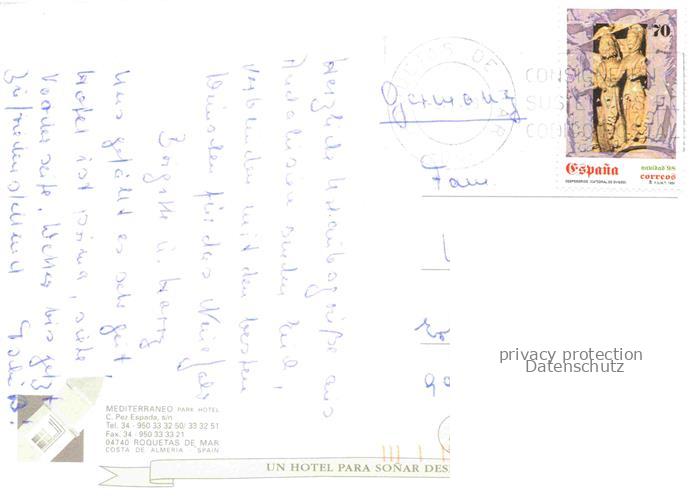 Herzliche Urlaubsgrüße aus
Andalusien senden Euch,
verbunden mit den besten
Wünschen für das Neue Jahr
Brigitte u. Harry
Uns gefällt es sehr gut!
Hotel ist prima, siehe
Vorderseite, Wetter bis jetzt
zufriedenstellend
Germany
Fam
70
CONSIGNE
España
navidad 98
correos
privacy protection
Datenschutz
MEDITERRANEO PARK HOTEL
C. Pez Espada, s/n
Tel. 34 - 950 33 32 50/ 33 32 51
Fax. 34 - 950 33 33 21
04740 ROQUETAS DE MAR
COSTA DE ALMERIA - SPAIN
UN HOTEL PARA SOÑAR DES